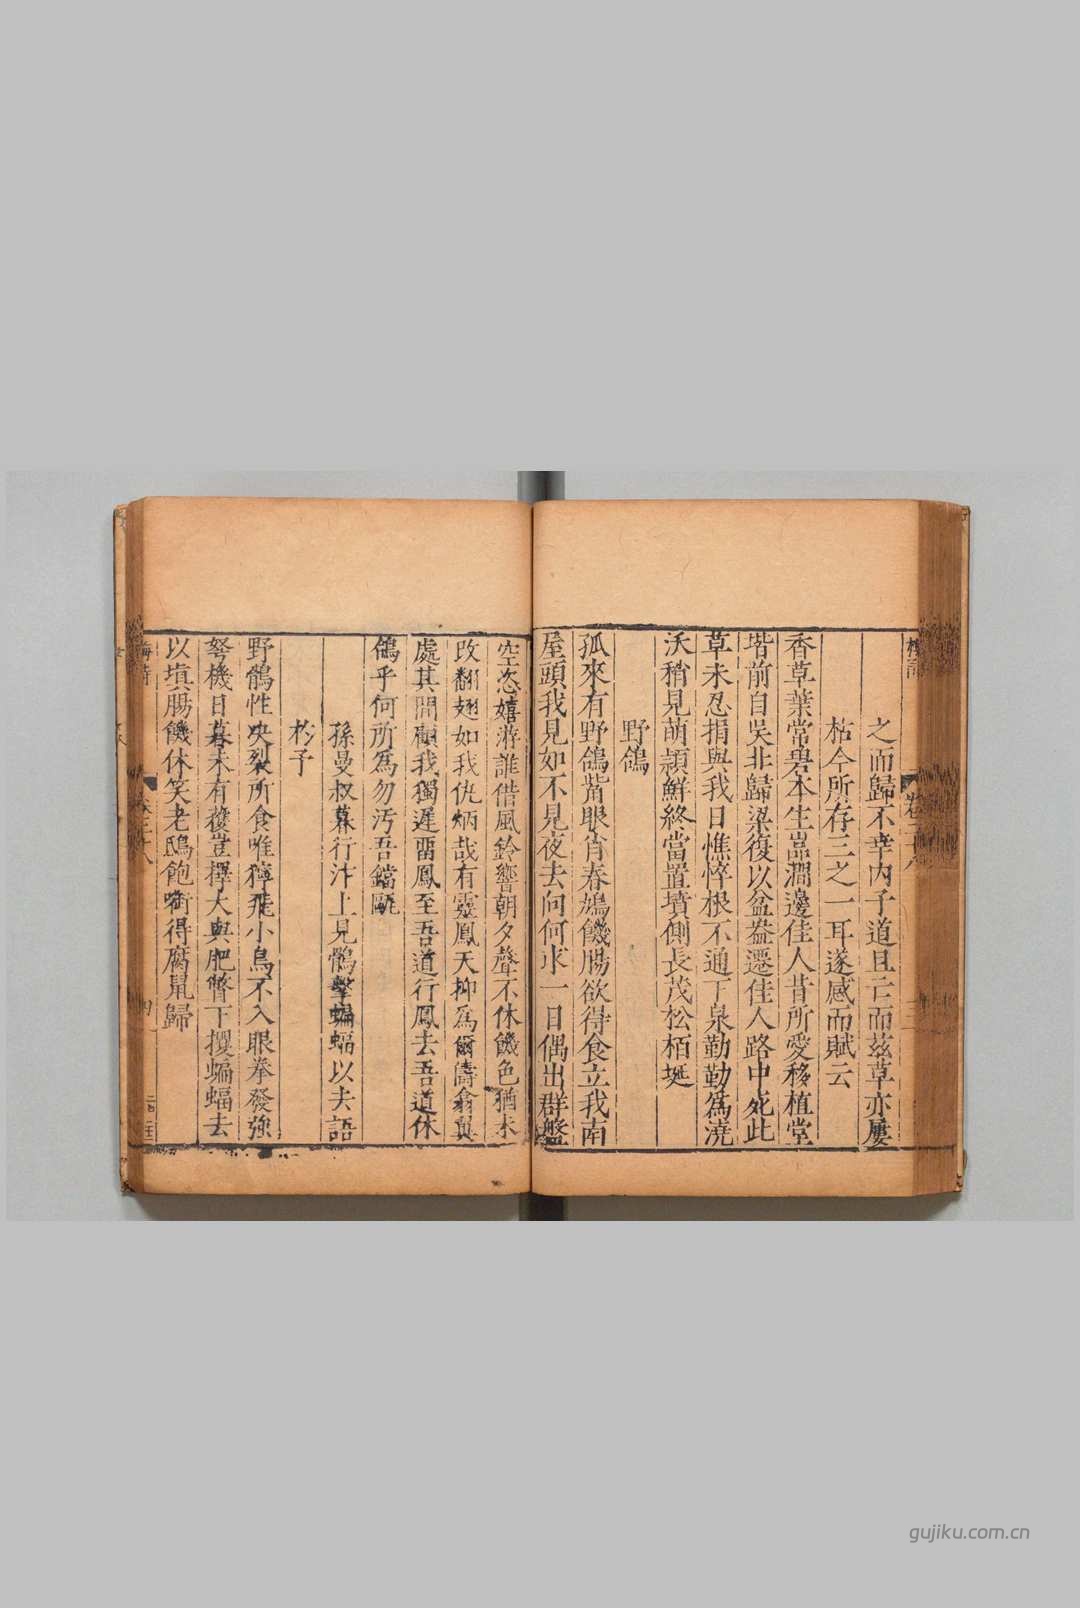 之而歸不幸内子道且亡而茲草亦屢
枯今所存三之一耳遂感而賦云
香草葉常碧本生嵓澗邊佳人昔所愛移植堂
堦前自吳非歸梁復以盆盎遷佳人路中死此
草未忍捐與我日憔悴根不通下泉勤勤爲澆
沃稍見萌穎鮮終當置墳側長茂松栢埏
野鴿
孤來有野鴿觜眼肖春鳩饑腸欲得食立我南
屋頭我見如不見夜去向何求一日偶出群盤
空恣嬉游誰借風鈴響朝夕聲不休饑色猶未
改翻翅如我仇炳哉有靈鳳天抑爲爾儔翕翼
處其間顧我獨遲畱鳳至吾道行鳳去吾道休
鴿乎何所爲勿汚吾鐺甌
孫曼叔暮行汴上見鶻擊蝙蝠以夫語
於予
野鶻性决裂所食唯獰飛小鳥不入眼拳發強
弩機日暮未有獲豈擇大與肥瞥下攫蝙蝠去
以塡腸饑休笑老鴟飽銜得腐鼠歸
卷三十八
gujiku.com.cn